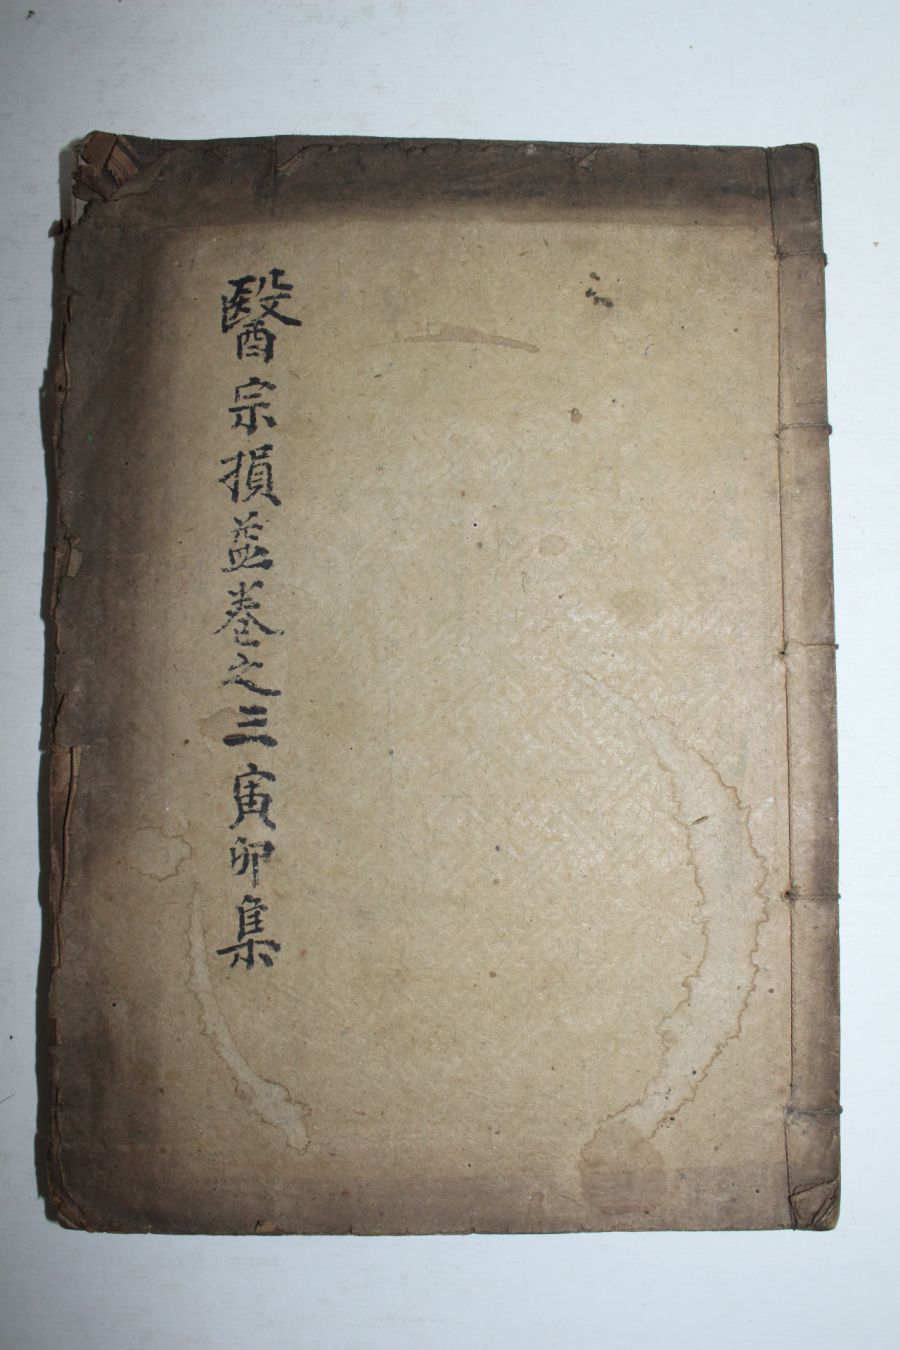 醫宗損益卷之三寅卯集